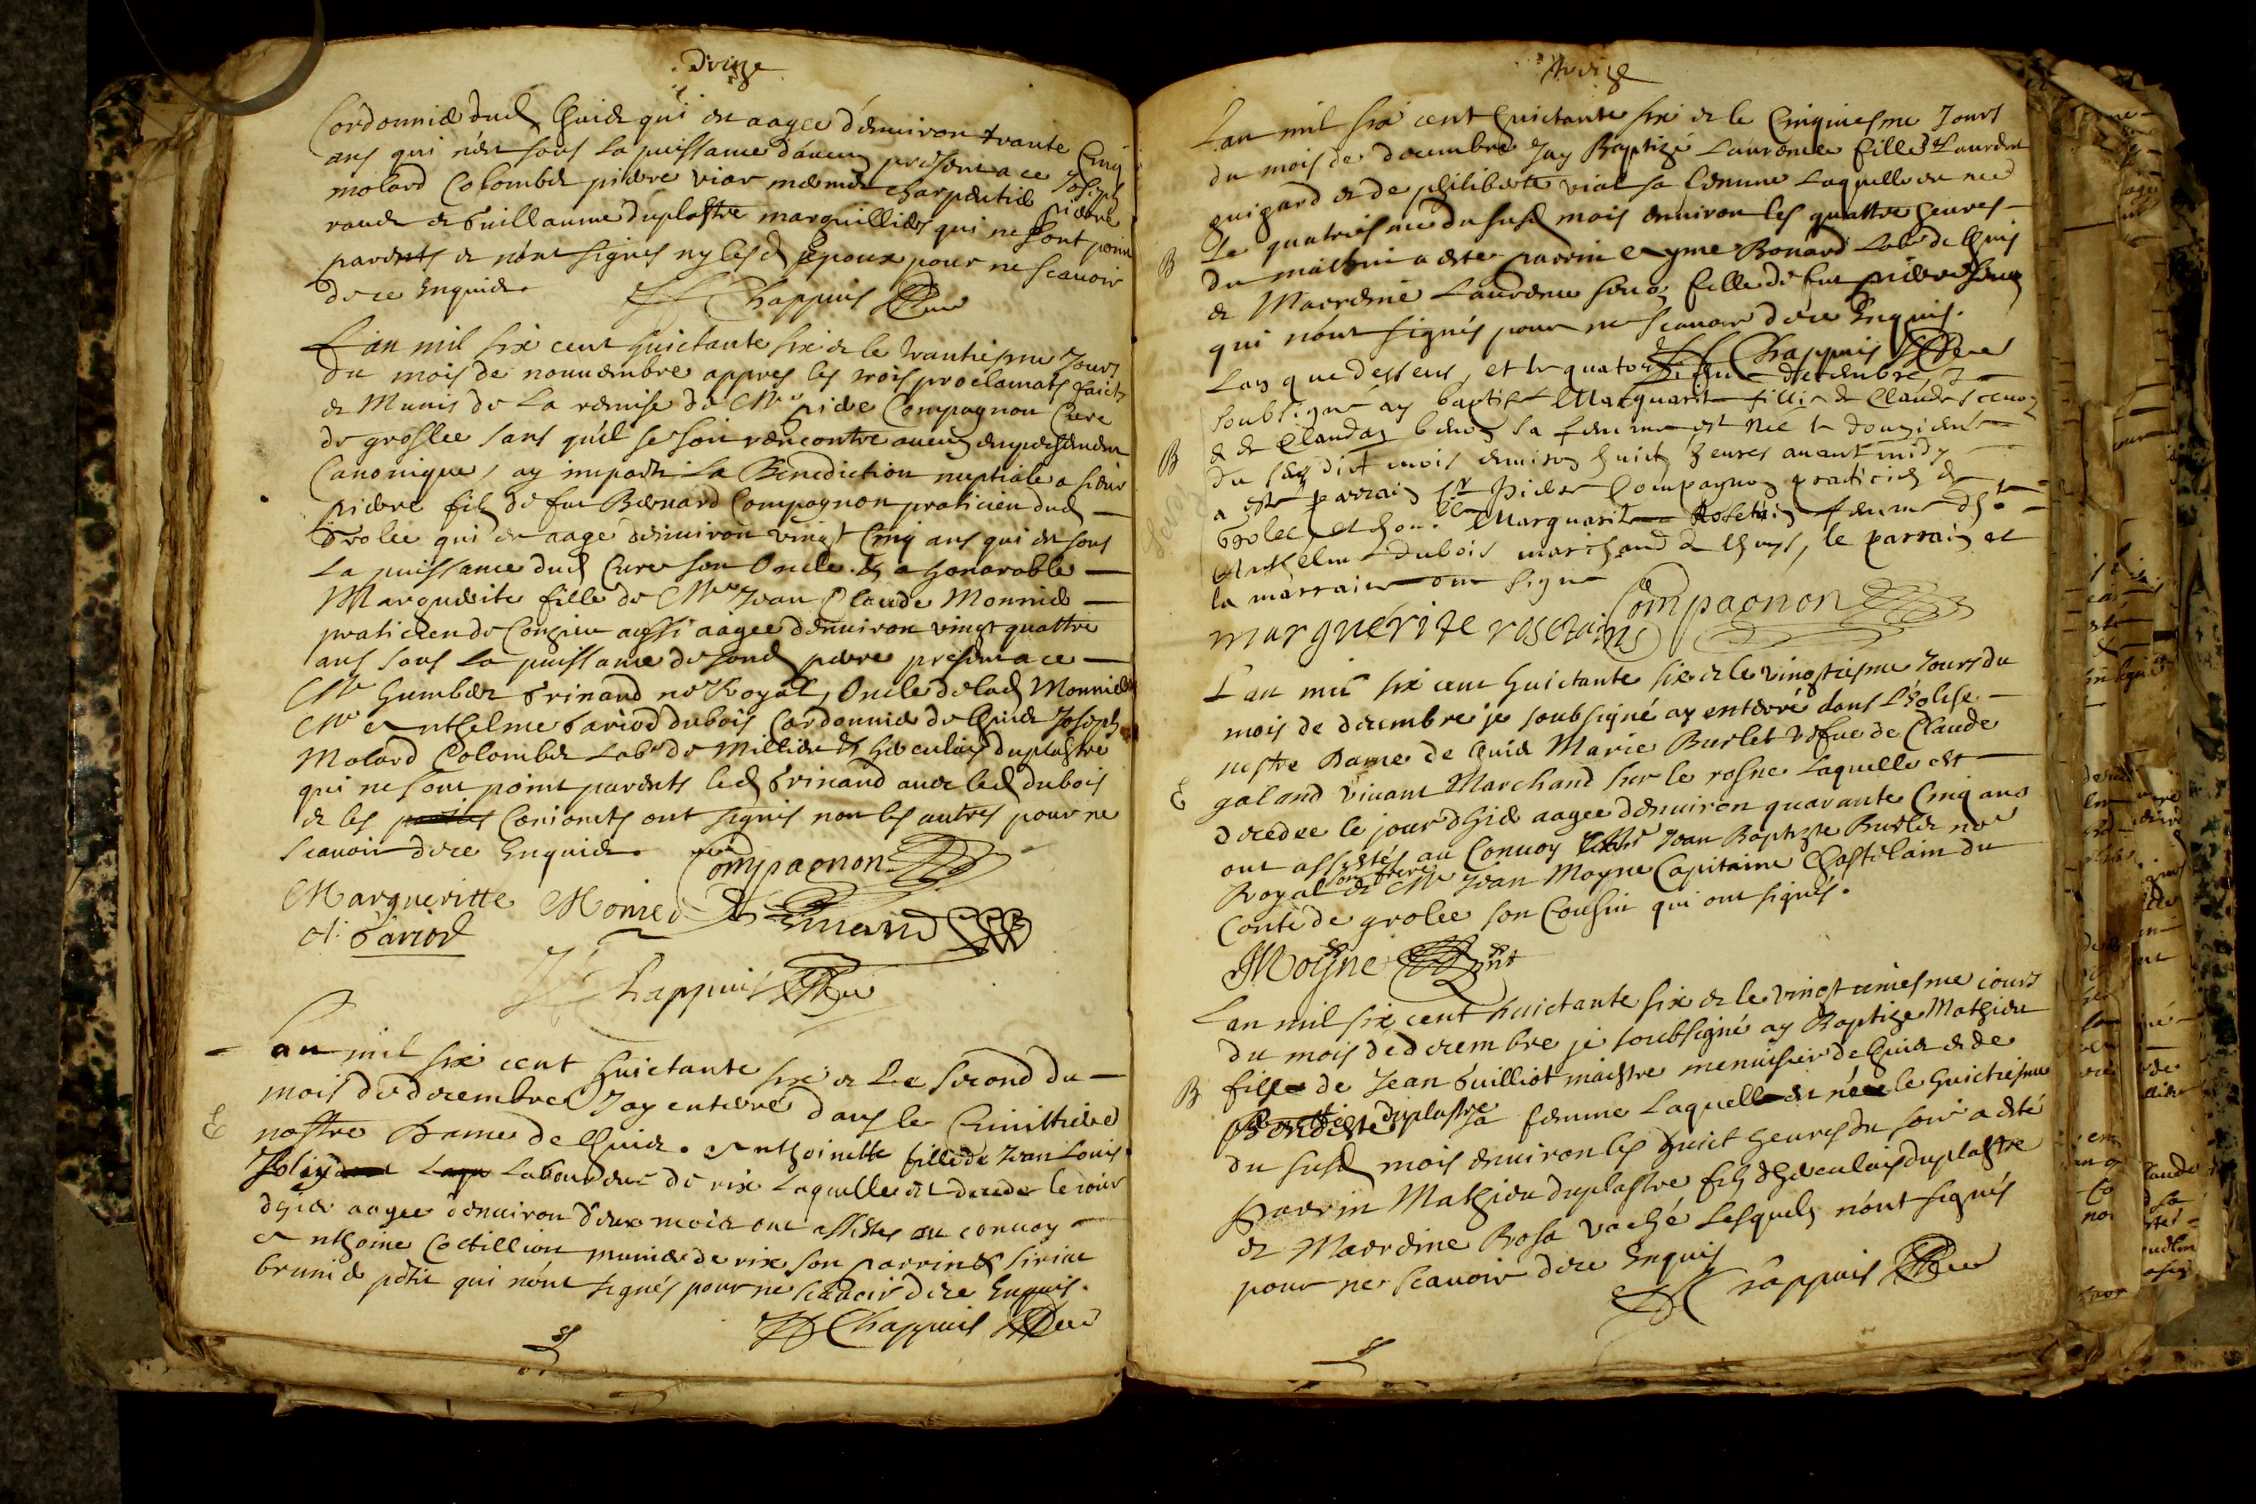 Cordonnier dud Quirie qui est aagee d'environ trante Cinq
ans qui n'est sous la puissance d'aucun present a ce Joseph
molard Colombet pierre viar charpentier pierre
et Guillaume duplastre marguilliers qui ne sont point
parents et n'ont signes ny lesd epoux pour ne scavoir
de ce Enquis.
Chappuis Cure
L'an mil six cent huictante six et le trantiesme Jours
du mois de nouuembre appres les trois proclamats faicts
et Munis de la remise de Mre pierre Compagnon Cure
de groslee sans qu'il se soit rencontre aucun empeschement
Canonique, ay imparti la Benediction nuptiale a sieur
pierre fils de feu Bernard Compagnon praticien dud
Grolee qui est aage d'enuiron vingt Cinq ans qui est sous
la puissance dud Cure son Oncle. Et a honorable
Marguerite fille de Mre Jean Claude Monnier
praticien de Conzieu aussi aagee d'enuiron vingt quattre
ans sous la puissance de sond pere present a ce
Mre humbert Grinand nore Royal, Oncle de lad Monnier
Mre Anthelme Gariod dubois Cordonnier de Quirie Joseph
Molard Colombet Labr de Millieu et herculais duplastre
qui ne sont point parents led Grinand auec led dubois
et les Conioincts ont signes non les autres pour ne
scauoir de ce Enquis.
Compagnon
Margueritte Monier Grinand
A: Gariod
Chappuis Cure
L'an mil six cent huictante six et Le second du
mois de decembre J'ay enterré dans le Cimittiere
nostre Dame de Quirie. Anthoinette fille de Jean Louis
Laboureur de rix Laquelle est decedee le iour
d'hier aagee d'enuiron deux mois ont assistes au conuoy
Anthoine Cottillion munier de rix son parrin et
brunier petit qui n'ont signés pour ne scauoir de ce Enquis.
Chappuis Cure
L'an mil six cent huictante six et le Cinquiesme Jours
du mois de decembre J'ay Baptizé Laurence fille de Laurent
guigard et de philiberte vial sa femme Laquelle est nee
Le quatriesme du susd mois enuiron les quattre heures
B du matin a esté parrin Ayme Bonard Labr de Quirie
et Marreine Laurence fille de feu pierre
qui n'ont signés pour ne scauoir de ce Enquis.
Chappuis Cure
L'an que dessus, et le decembre Je
soubsigné ay baptisé Marguerite fillie de Claude
B & de Clauda sa femme est née le douzieme
du susdict mois enuiron huict heures auant midy
a esté parrain Sr Pierre Compagnon praticien de
Grolee et hon. Marguerite Rosetain femme d'hon.
Anthelme dubois marchand de Quyrs, le parrain et
la marraine ont signe
Compagnon
marguérite rosetain
L'an mil six cent huictante six et le vingtiesme Jours du
mois de decembre je soubsigné ay enterré dans L'eglise
nostre Dame de Quirie Marie Burlet vefue de Claude
E galand viuant Marchand sur le rosne Laquelle est
decedee le jour d'hier aagee d'enuiron quarante Cinq ans
ont assistés au Conuoy Mre Jean Baptizte Burlet nore
Royal son frere et Mre Jean Moyne Capitaine Chastelain du
Conté de grolee son Cousin qui ont signés.
JMoyne
L'an mil six cent huictante six et le vingt uniesme iours
du mois de decembre je soubsigné ay Baptize Mathieu
B fils de Jean Guilliot maistre menuisier de Quirie et de
duplastre sa femme Laquelle est née le huictiesme
du susd mois enuiron les huict heures du soir a été
parrin Mathieu duplastre fils d'herculais duplastre
et Marreine Rosa vaché Lesquels n'ont signés
pour ne scauoir de ce Enquis
Chappuis Cure